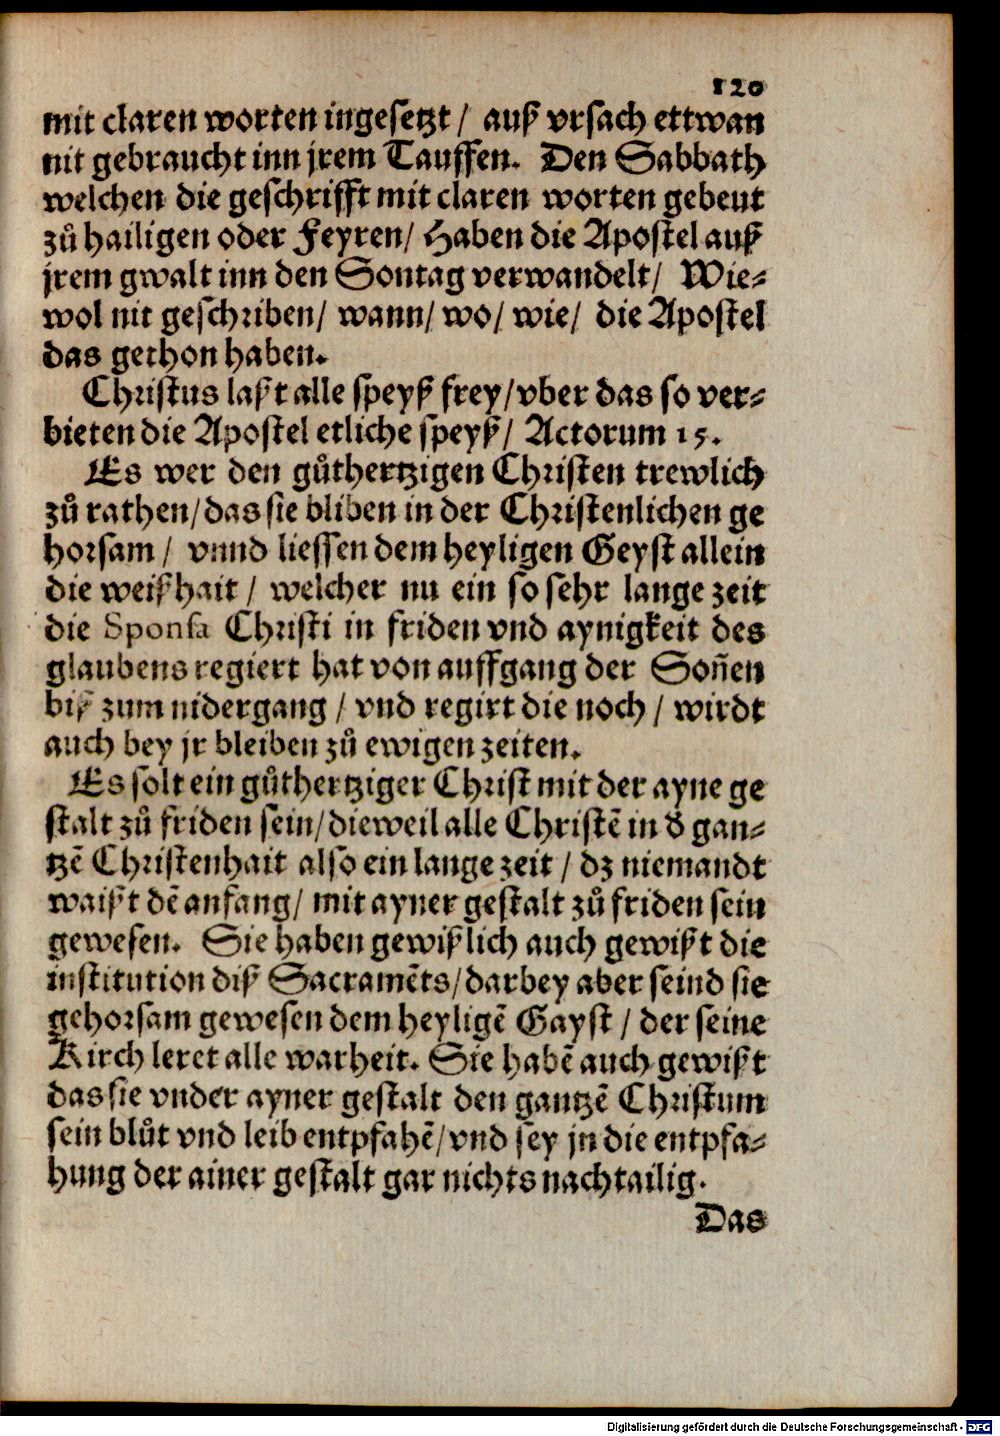 120
mit claren worten ingesetzt / auß vrsach ettwan
nit gebraucht inn jrem Tauffen. Den Sabbath
welchen die geschrifft mit claren worten gebeut
zů hailigen oder Feyren / Haben die Apostel auß
jrem gwalt inn den Sontag verwandelt / Wie-
wol nit geschriben / wann / wo / wie / die Apostel
das gethon haben.
Christus laßt alle speyß frey / vber das so ver-
bieten die Apostel etliche speyß / Actorum 15.
Es wer den gůthertzigen Christen trewlich
zů rathen / das sie bliben in der Christenlichen ge
horsam / vnnd liessen dem heyligen Geyst allein
die weißhait / welcher nu ein so sehr lange zeit
die Sponsa Christi in friden vnd aynigkeit des
glaubens regiert hat von auffgang der Soñen
biß zum nidergang / vnd regirt die noch / wirdt
auch bey jr bleiben zů ewigen zeiten.
Es solt ein gůthertziger Christ mit der ayne ge
stalt zů friden sein / dieweil alle Christẽ in d' gan-
tzẽ Christenhait also ein lange zeit / dz niemandt
waißt dẽ anfang / mit ayner gestalt zů friden sein
gewesen. Sie haben gewißlich auch gewißt die
institution diß Sacramẽts / darbey aber seind sie
gehorsam gewesen dem heyligẽ Gayst / der seine
Kirch leret alle warheit. Sie habẽ auch gewißt
das sie vnder ayner gestalt den gantzẽ Christum
sein blůt vnd leib entpfahẽ / vnd sey jn die entpfa-
hung der ainer gestalt gar nichts nachtailig.
Das
Digitalisierung gefördert durch die Deutsche Forschungsgemeinschaft - DFG